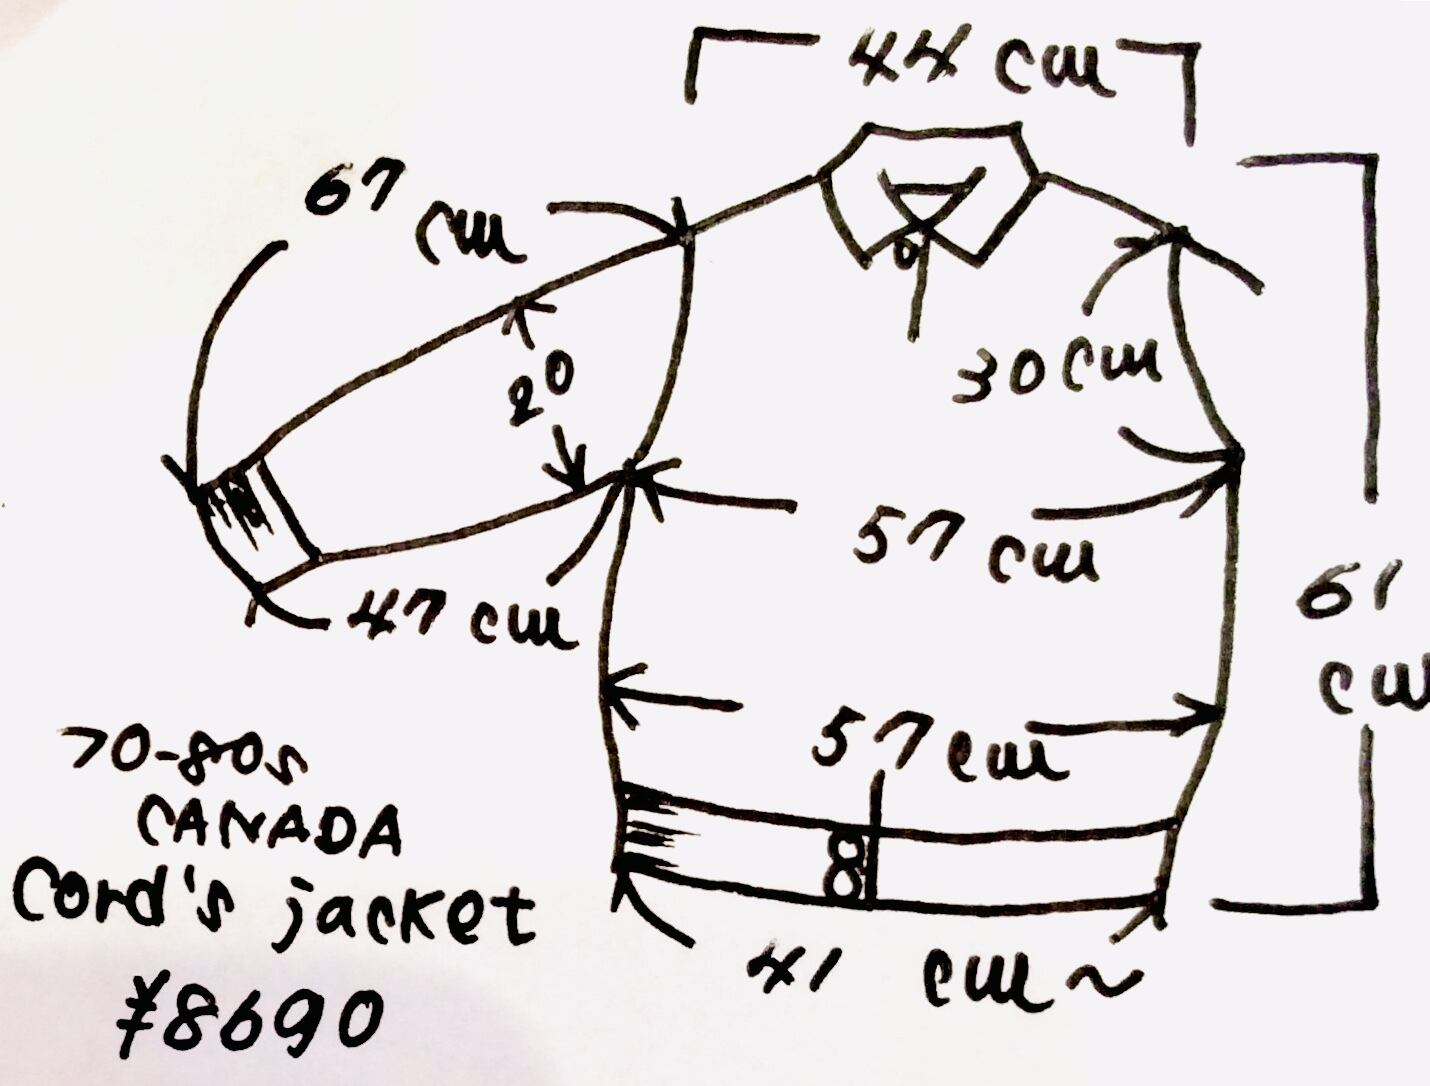 44 cm
67 cm
30 cm
20
57 cm
61 cm
47 cm
57 cm
70-80s
CANADA
Cord's jacket
¥8690
8
41 cm~